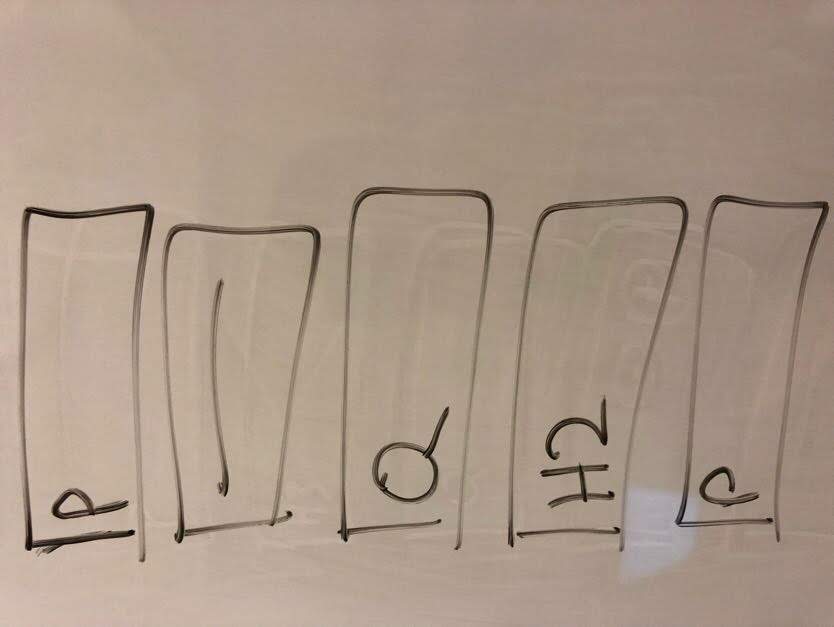 P
Q
H2
P